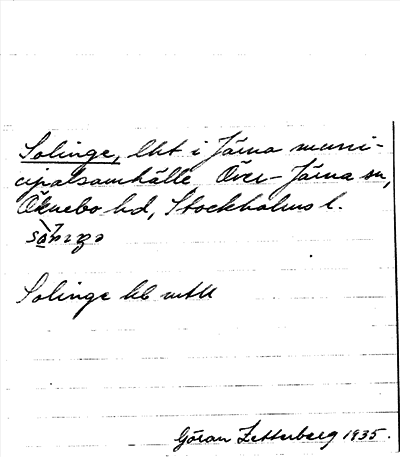 Solinge, lht i Järna muni-
cipalsamhälle Över-Järna sn,
Öknebo hd, Stockholms l.
Solinge hb mtU
Göran Zetterberg 1935.